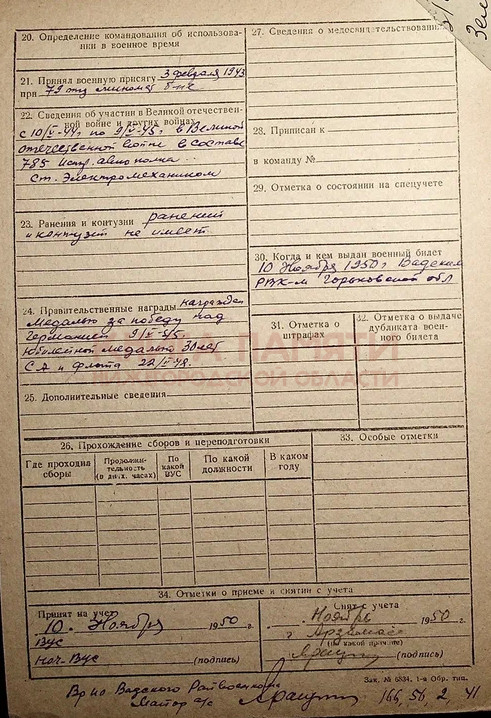 20. Определение командования об использова-
нии в военное время
21. Принял военную присягу 3 февраля 1943
при 79
22. Сведения об участии в Великой отечествен-
ной войне и других войнах
с 10/V-44 г. по 9/V-45 г. в Великой
отечественной войне в составе
785 авиополка
Ст. Электромехаником
23. Ранения и контузии ранений
и контузий не имеет
24. Правительственные награды награжден
Медалью за победу над
Германией 9/V-45
Юбилейной медалью 30 лет
СА и флота 22/II-48.
25. Дополнительные сведения
26. Прохождение сборов и переподготовки
Где проходил сборы
Продолжи-тельность (в дн.х. часах)
По какой ВУС
По какой должности
В каком году
27. Сведения о медосвидетельствовании
28. Приписан к
в команду №
29. Отметка о состоянии на спецучете
30. Когда и кем выдан военный билет
10 Ноября 1950 г Вадским
РВК-м Горьковской обл
31. Отметка о штрафах
32. Отметка о выдаче дубликата воен-ного билета
ПАМЯТИ
НИЖЕГОРОДСКОЙ ОБЛАСТИ
33. Особые отметки
34. Отметки о приеме и снятии с учета
Принят на учет
10. Ноября 1950 г.
ВУС
Нач-ВУС (подпись)
Снят с учета
Ноябрь 1950 г.
г Арзамас
(по какой причине)
(подпись)
Зак. № 6834. 1-я Обр. тип.
Врио Вадского Райвоенкома
Майор а/с
166, 56, 2, 41